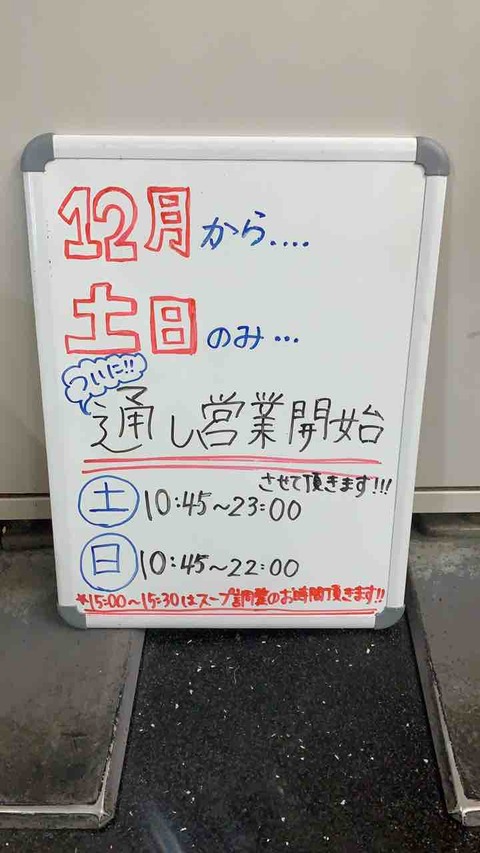 12月から....
土日のみ...
ついに!!
通し営業開始
させて頂きます!!!
土 10:45~23:00
日 10:45~22:00
*15:00~15:30はスープ調整のお時間頂きます!!